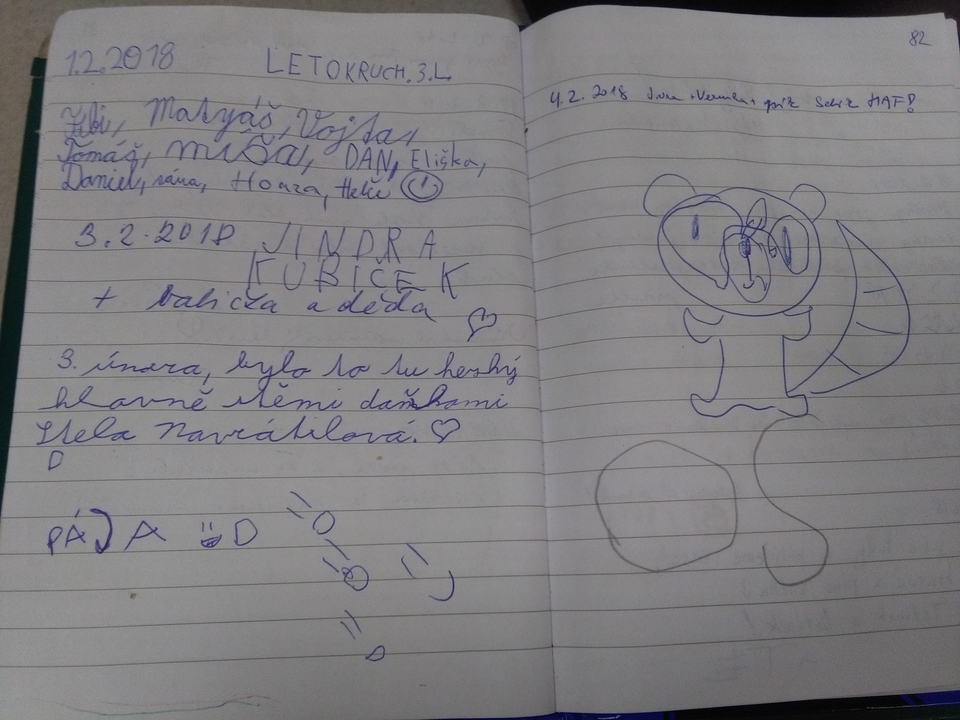 1.2.2018 LETOKRUCH.3.L
Matyáš, Vojta,
Tomáš, Míša, DAN, Eliška,
Daniel, Honza,
3.2.2018 JINDRA
KUBÍČEK
+ babička a děda
3. února, bylo to tu heský
hlavně stěmi daňkami
Stela Navrátilová.
D
PÁJA D
82
4.2.2018 HAF!